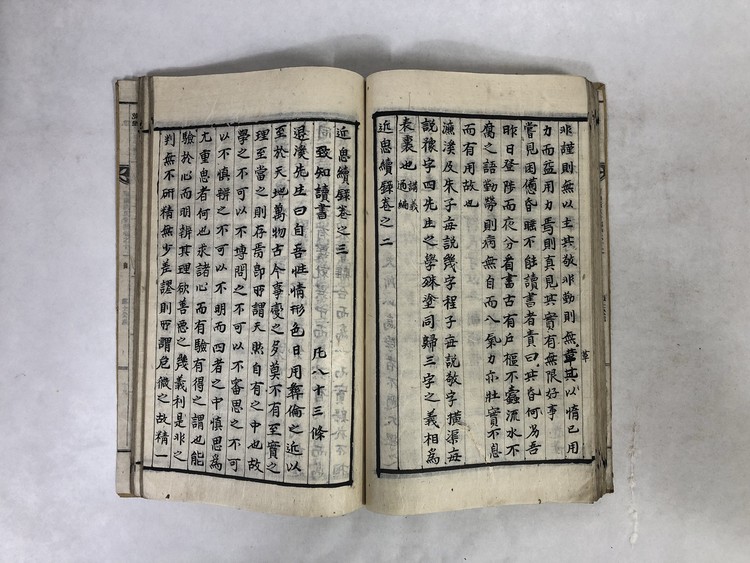 非謹則無以主其敬非勤則無革其以惰已用
力而益用力焉則真見其實有無限好事
嘗見困儓昏睡不能讀書者責曰其昏何為吾
昨日登陟而夜分看書古有戶樞不蠹流水不
腐之語勤勞則病無自而入氣力亦壯實不息
而有用故也
濂溪及朱子每說幾字程子每說敬字橫渠每
說禮字四先生之學殊塗同歸三字之義相為
表裏也 講義通編
近思續錄卷之二
近思續錄卷之三
致知讀書 凡八十三條
退溪先生曰自吾性情形色日用彝倫之近以
至於天地萬物古今事變之多莫不有至實之
理至當之則存焉即所謂天然自有之中也故
學之不可以不博問之不可以不審思之不可
以不慎辨之不可以不明而四者之中慎思為
尤重思者何也求諸心而有驗有得之謂也能
驗於心而明辨其理欲善惡之幾義利是非之
判無不研精無少差謬則所謂危微之故精一